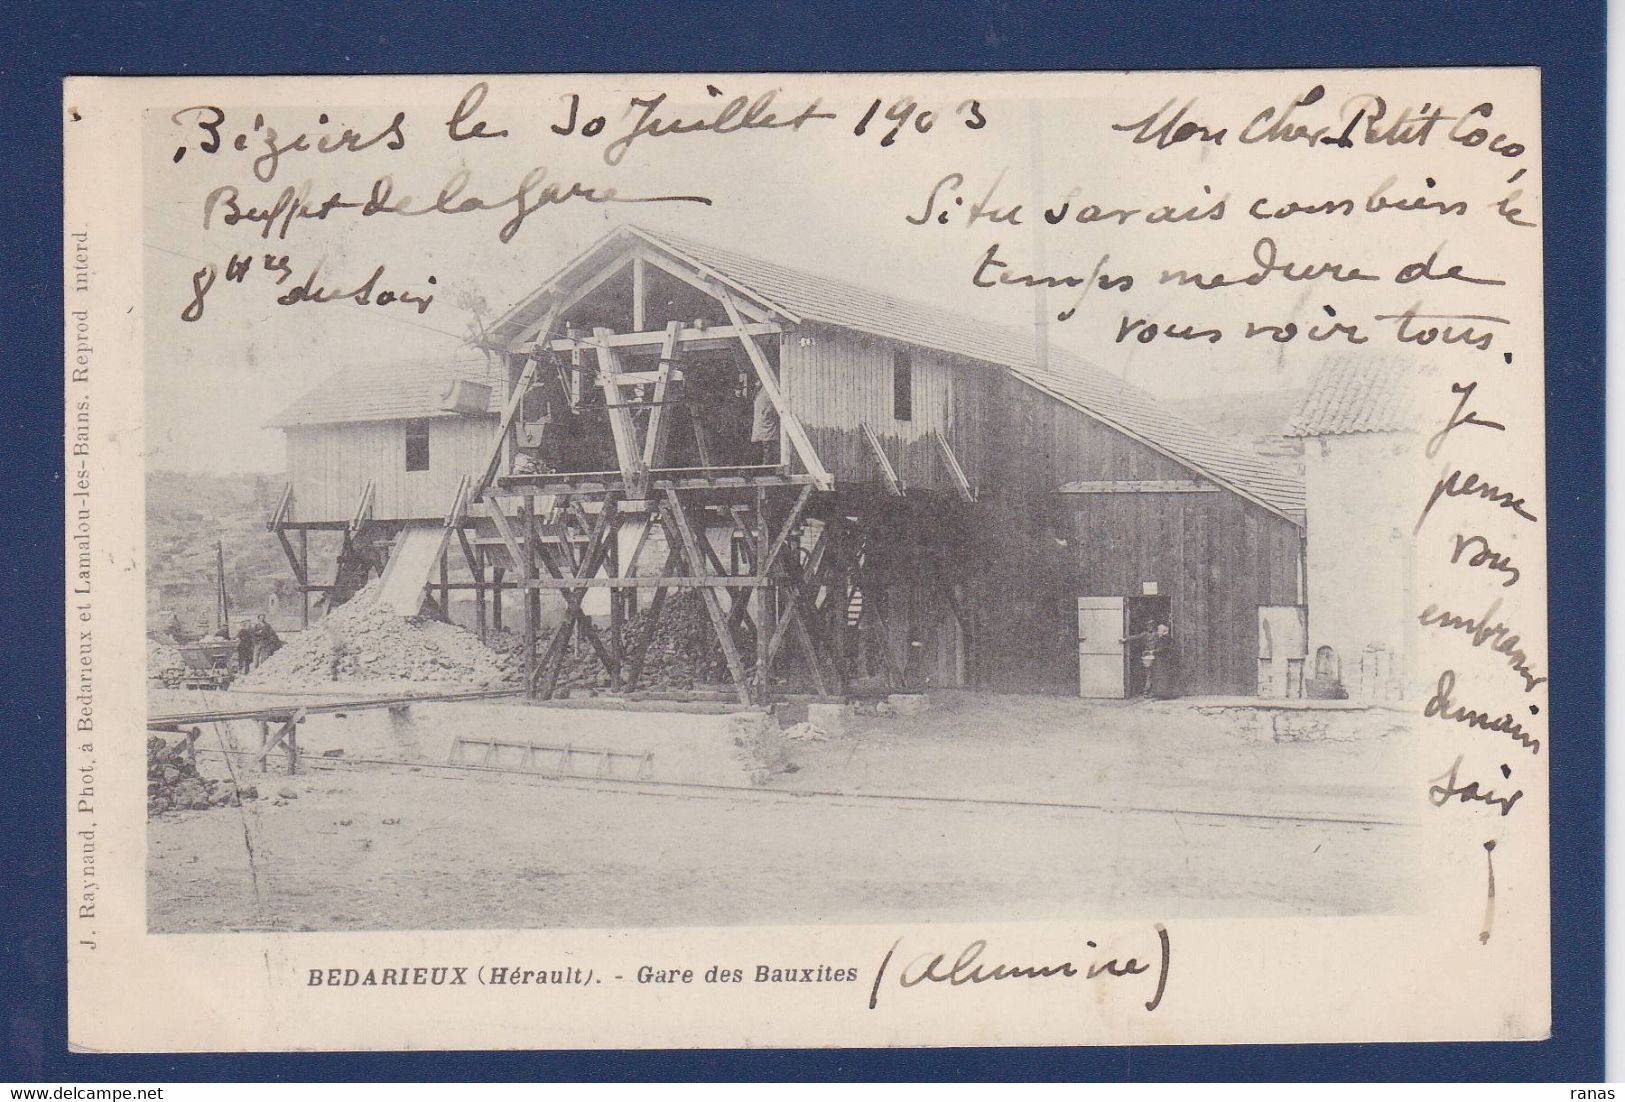 Béziers le 30 Juillet 1903
Buffet de la Gare
8 Hres du soir
Mon Cher Petit Coco,
Si tu savais combien le
temps me dure de
vous voir tous.
Je
pense
vous
embrasser
demain
soir
!
J. Raynaud, Phot. à Bedarieux et Lamalou-les-Bains. Reprod interd.
BEDARIEUX (Hérault). - Gare des Bauxites (alumine)
ranas